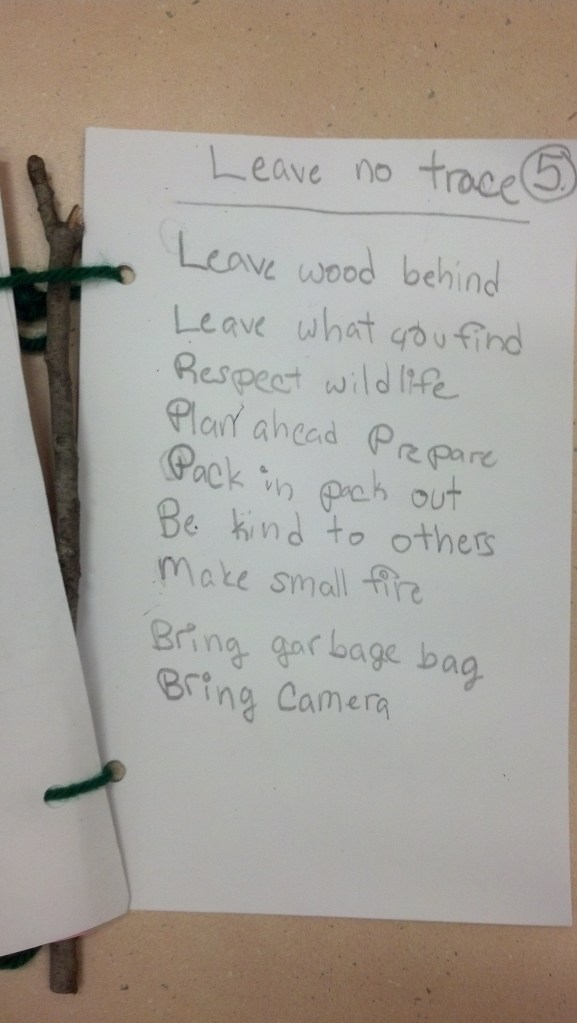 Leave no trace 5.
Leave wood behind
Leave what you find
Respect wildlife
Plan ahead Prepare
Pack in pack out
Be kind to others
Make small fire
Bring garbage bag
Bring Camera